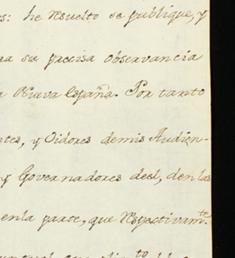 s: he resuelto se publique, y
su precisa observancia
Nueva España. Por tanto
ntes, y Oidores de mis Audien-
y Governadores de el, den las
en la parte, que respectivam.te